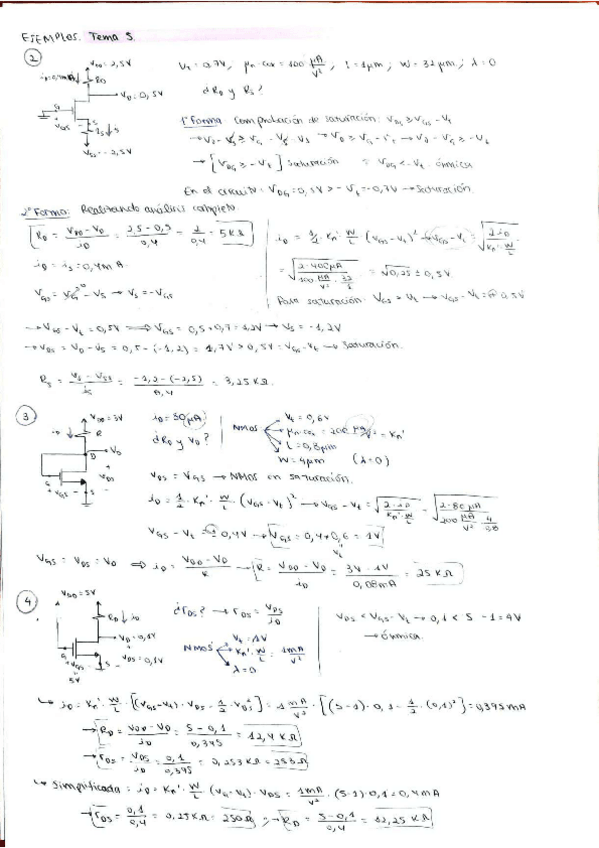 EJEMPLOS. Tema 5.
②
V_DD = 2,5V
R_D
V_D = 0,5V
V_SS = -2,5V
V_t = 0,7V, μ_n·Cox = 100 μA/V², L = 1μm, W = 32μm, λ = 0
¿R_D y R_S?
1ª Forma: Comprobación de saturación: V_DS ≥ V_GS - V_t
→ V_D - V_S ≥ V_G - V_S - V_t → V_D ≥ V_G - V_t → V_D - V_G ≥ -V_t
→ [V_DG ≥ -V_t] saturación = V_DG < -V_t óhmica
En el circuito: V_DG = 0,5V > -V_t = -0,7V → Saturación.
2ª Forma: Realizando análisis completo
R_D = (V_DD - V_D)/i_D = (2,5 - 0,5)/0,4 = 2/0,4 = 5KΩ
i_D = 1/2 · K_n' · W/L (V_GS - V_t)² → V_GS - V_t = √(2·i_D/(K_n'·W/L))
i_D = i_S = 0,4mA.
= √(2·400μA/(100 μA/V² · 32/1)) = √0,25 = ± 0,5V
V_GS = V_G - V_S → V_S = -V_GS
Para saturación: V_GS > V_t → V_GS - V_t = ⊕ 0,5V
→ V_GS - V_t = 0,5V ⟹ V_GS = 0,5 + 0,7 = 1,2V → V_S = -1,2V
→ V_DS = V_D - V_S = 0,5 - (-1,2) = 1,7V > 0,5V = V_GS - V_t → Saturación.
R_S = (V_S - V_SS)/i_S = (-1,2 - (-2,5))/0,4 = 3,25KΩ.
③
V_DD = 3V
i_D ↓ R
D V_D
i_D = 80μA
¿R_D y V_D?
NMOS
V_t = 0,6V
μ_n·Cox = 200 μA/V² = K_n'
L = 0,8μm
W = 4μm (λ = 0)
V_DS = V_GS → NMOS en saturación.
i_D = 1/2 · K_n' · W/L · (V_GS - V_t)² → V_GS - V_t = √(2·i_D/(K_n'·W/L)) = √(2·80μA/(200 μA/V² · 4/0,8))
V_GS - V_t = 0,4V → V_GS = 0,4 + 0,6 = 1V
V_t
V_GS = V_DS = V_D ⟹ i_D = (V_DD - V_D)/R → R = (V_DD - V_D)/i_D = (3V - 1V)/0,08mA = 25KΩ
④
V_DD = 5V
R_D ↓ i_D
V_D = 0,1V
V_DS = 0,1V
5V
¿r_DS? → r_DS = V_DS/i_D
NMOS
V_t = 1V
K_n'·W/L = 1mA/V²
λ = 0
V_DS < V_GS - V_t → 0,1 < 5 - 1 = 4V
→ óhmica.
↳ i_D = K_n' · W/L · [(V_GS - V_t) · V_DS - 1/2 · V_DS²] = 1 mA/V² · [(5-1) · 0,1 - 1/2 · (0,1)²] = 0,395mA
→ R_D = (V_DD - V_D)/i_D = (5 - 0,1)/0,395 = 12,4KΩ
→ r_DS = V_DS/i_D = 0,1/0,395 = 0,253KΩ = 253Ω
↳ Simplificada: i_D = K_n' · W/L (V_GS - V_t) · V_DS = 1mA/V² · (5-1) · 0,1 = 0,4mA
→ r_DS = 0,1/0,4 = 0,25KΩ = 250Ω ; → R_D = (5 - 0,1)/0,4 = 12,25KΩ